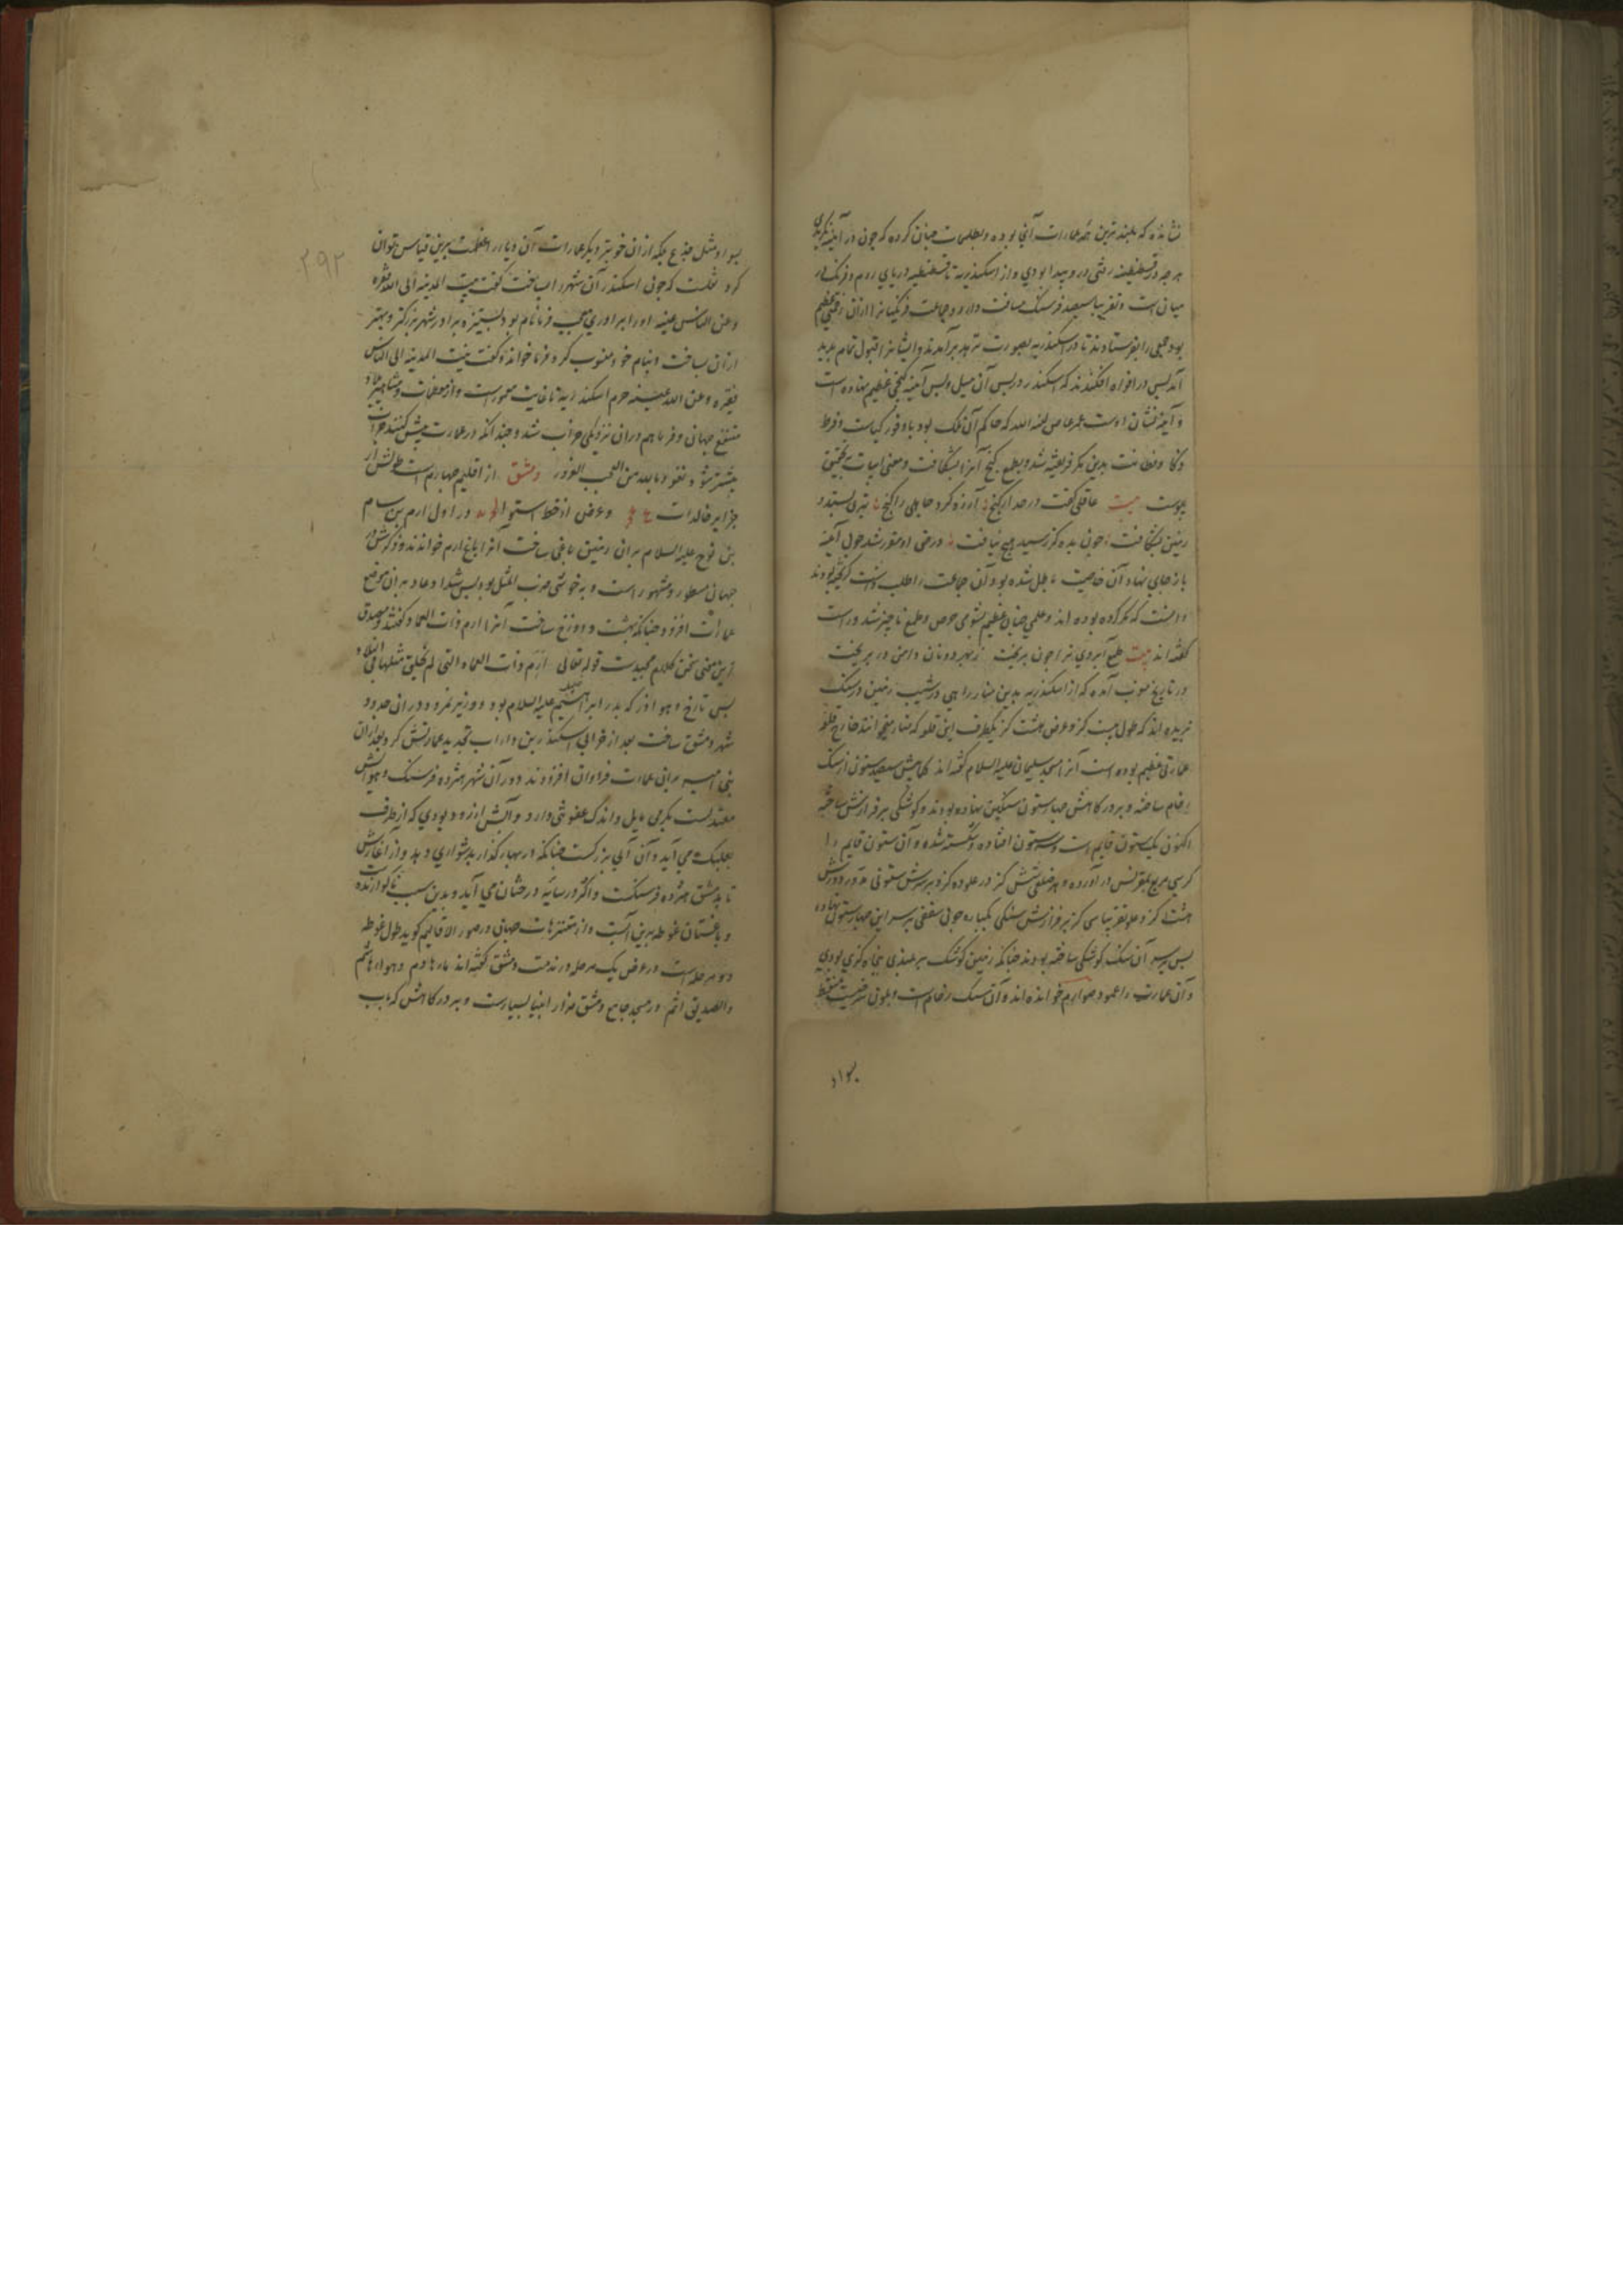 نشانده که بلندترین همه عمارات آنی بوده و بطلسمات چنان کرده که چون در آینه نگریدی
هرچه در قسطنطنیه رفتی درو پیدا بودی و از اسکندریه تا قسطنطنیه دریای روم و فرنگ در
میان است و تقریبا سیصد فرسنگ مسافت دارد و جماعت فرنگیانرا ازان زحمتی عظیم
بود جمعی را بفرستادند تا در اسکندریه بصورت تزهد برآمدند و ایشانرا قبول تمام پدید
آمد پس در افواه افکندند که اسکندر در پس آن میل و پس آینه گنجی عظیم نهاده است
و آینه نشان اوست عمر عاص که حاکم آن ملک بود باوفور کیاست و فرط
ذکا و فطانت بدین مکر فریفته شد و بطمع گنج آنرا بشکافت و معنی ابیات بتحقیق
پیوست بیت عاقلی گفت در حد ارگنج آرزو کرد جاهلی را گنج تبری بستد و
زمین بشکافت چون بده گز رسید هیچ نیافت در حق او مقرر شد چون آینه
باز جای نهاد آن خاصیت باطل شده بود و آن جماعت را طلب داشت گریخته بودند
دانست که مکر کرده بوده اند و علمی چنان عظیم بشومی حرص و طمع ناچیز شد و راست
گفته اند بیت طمع آبروی مرا چون بریخت ز بهر دو نان دامن در بریخت
در تاریخ مغرب آمده که از اسکندریه بدین منار راهی در شیب زمین در سنگ
بریده اند که طول بیست گز و عرض هشت گز یکطرف این قلعه که منار میخوانند خارج قلعه
عمارتی عظیم بوده است آنرا مسجد سلیمان علیه السلام گفته اند کمابیش سیصد ستون از سنگ
رخام ساخته و بر درگاهش چهار ستون سنگین نهاده بودند و کوشکی بر فرازش ساخته
اکنون یک ستون قایم است و سه ستون افتاده و شکسته شده و آن ستون قایم را
کرسی مربع بقرنس در آورده و هر ضلعی شش گز در علو ده گز و بر سرش ستونی مدور دورش
هشت گز و علو تقریبا سی گز بر فرازش سنگی یکپاره چون سقفی بر سر این چهار ستون نهاده
پس بر سر آن سنگ کوشکی ساخته بودند چنانکه زمین کوشک بر بلندی پنجاه گزی بودی
و آن عمارت را عمود صواری خوانده اند و آن سنگ رخام است و بلون سرخیست منقط
بسواد مثل جزع بلکه ازان خوبتر و دیگر عمارات آن دیار را عظمت برین قیاس توان
کرد نقلست که چون اسکندر آن شهر را بساخت گفت بنیت المدینة الی الله فقره
وعن الناس غنیه او را برادری معجب فرما نام بود بستیزه برادر شهر بزرگتر و بهتر
ازان بساخت و بنام خود منسوب کرد و فرما خواند و گفت بنیت المدینة الی الناس
فقره وعن الله غنیه جرم اسکندریه تا غایت معمور است و از معظمات و مشاهیر بلاد
منتفع جهان و فرما هم دران نزدیکی خراب شد و چندانکه در عمارت بیش کنند خراب
بیشتر شود نعوذ بالله من العجب الغرور دمشق از اقلیم چهارم است طولش از
جزایر خالدات وعرض از خط استوا در اول ارم بن سام
بن نوح علیه السلام بران زمین باغی ساخت آنرا باغ ارم خواندند و ذکرش در
جهان مسطور و مشهور است و بخوشی ضرب المثل بود پس شداد عاد بران موضع
عمارات افزود چنانکه بهشت و دوزخ ساخت آنرا ارم ذات العماد گفتند و مصدق
این معنی سخن کلام مجیدست قوله تعالی ارم ذات العماد التی لم یخلق مثلها فی البلاد
پس تارخ و هو آذر که پدر ابراهیم علیه السلام بود و وزیر نمرود دران حدود
شهر دمشق ساخت بعد از خرابی اسکندر بن داراب تجدید عمارتش کرد و بعد ازان
بنی امیه بران عمارات فراوان افزودند دور آن شهر هژده فرسنگ و هوایش
معتدلست بگرمی مایل و اندک عفونتی دارد و آبش از رود بردی که از طرف
بعلبک می آید و آن آبی بزرگست چنانکه در بهار گذار بدشواری دهد و از آغازش
تا بدمشق هژده فرسنگست و اکثر در سایه درختان می آید و بدین سبب ناگوارنده است
و باغستان غوطه برین آبست و از متنزهات جهان در صور الاقالیم گوید طول غوطه
دو مرحله است و عرض یک مرحله در مذمت دمشق گفته اند
والصدیق اثم در مسجد جامع دمشق مزار انبیا بسیار است و بر درگاهش که باب